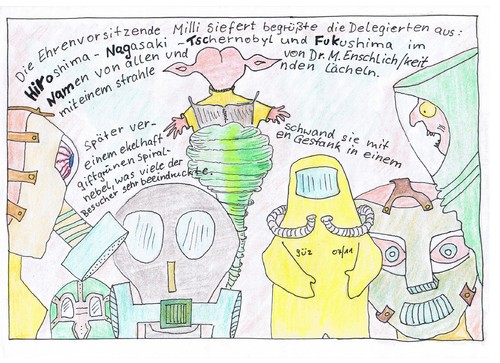 Die Ehrenvorsitzende Milli Siefert begrüßte die Delegierten aus:
Hiroshima - Nagasaki - Tschernobyl und Fukushima im
Namen von allen und von Dr. M. Enschlich/keit
mit einem strahle nden Lächeln.
Später ver- schwand sie mit
einem ekelhaft en Gestank in einem
giftgrünen Spiral-
nebel, was viele der
Besucher sehr beeindruckte.
güz 07/11